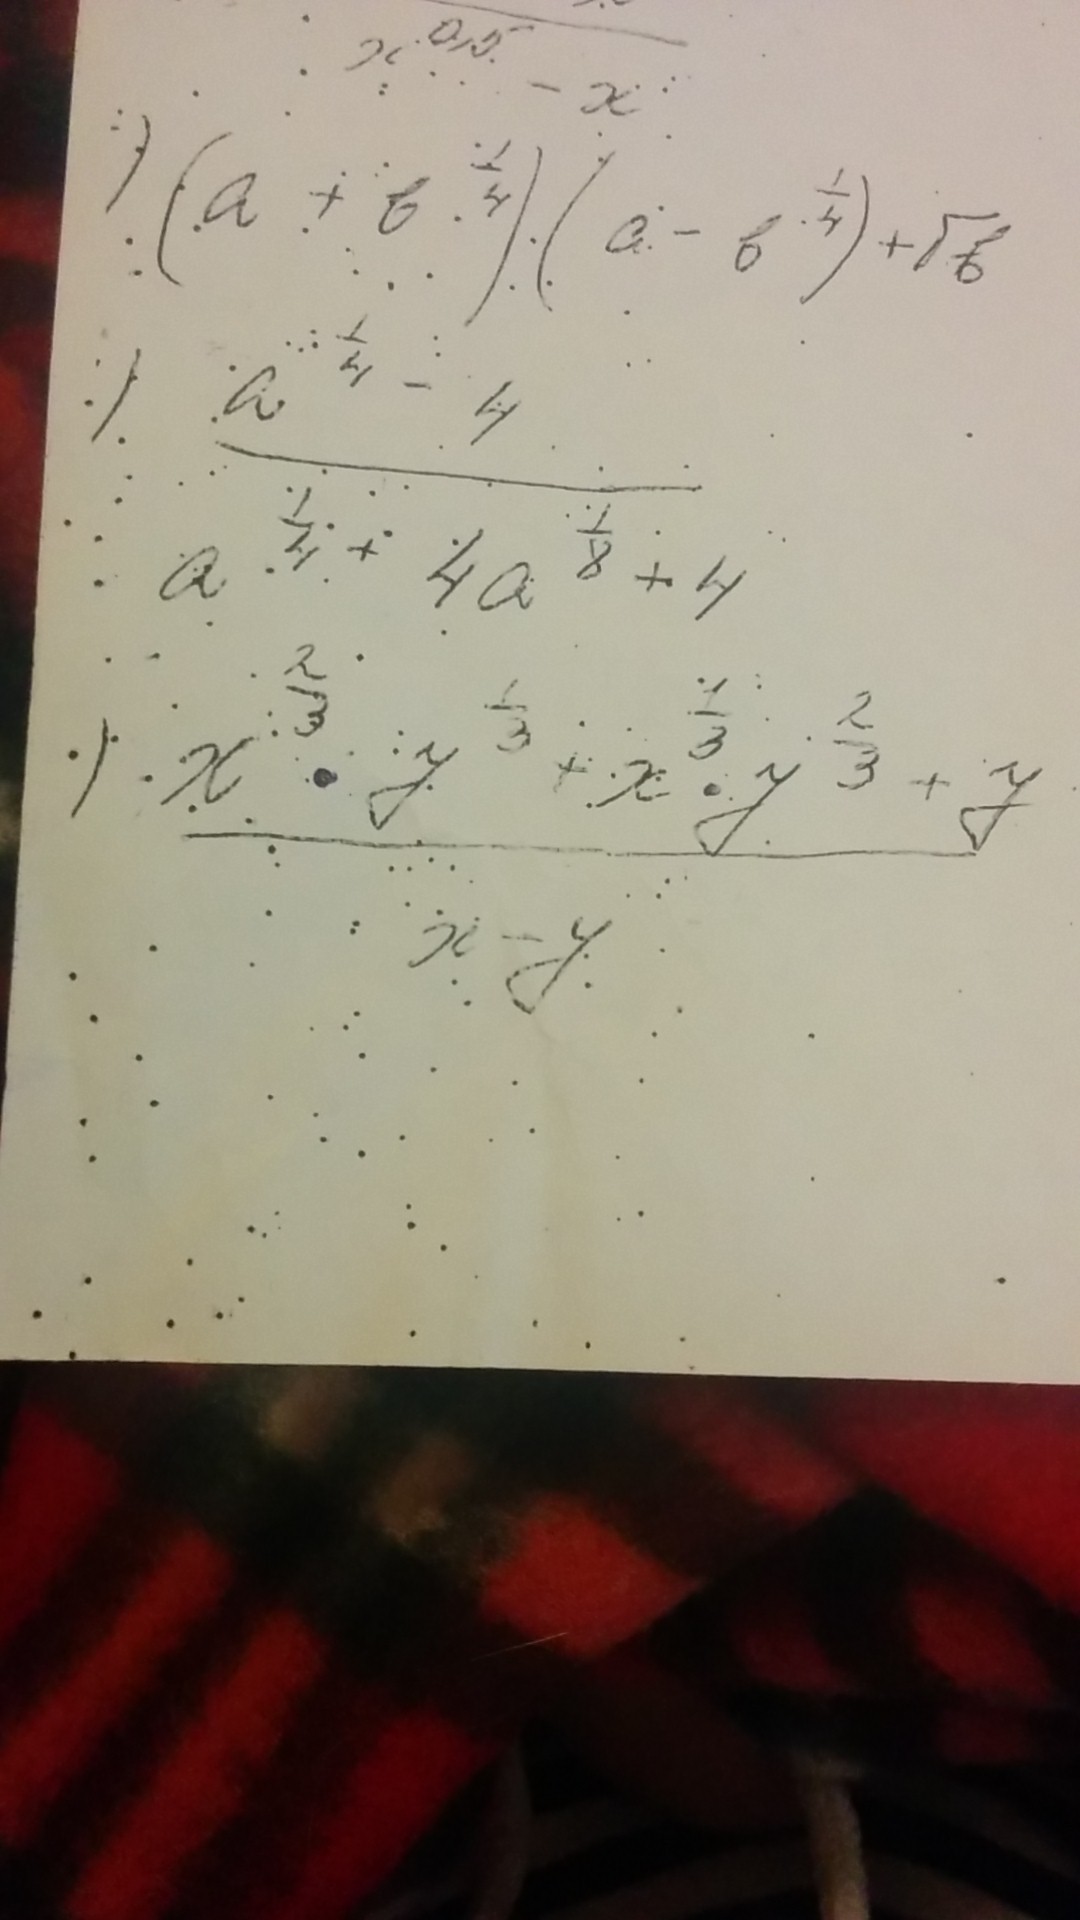 x^0,5 - x
) (a + b^1/4)(a - b^1/4) + √b
) a^1/4 - 4
a^1/4 + 4a^1/8 + 4
) x^2/3 • y^1/3 + x^1/3 • y^2/3 + y
x - y